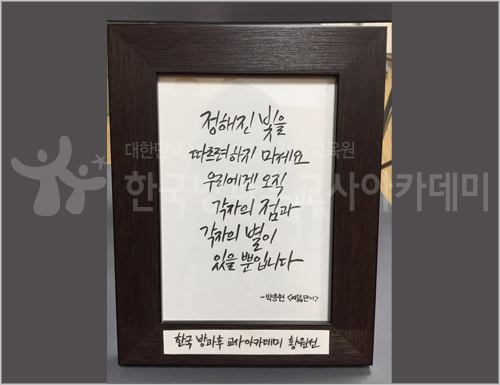 정해진 빛을
따르려하지 마세요
우리에겐 오직
각자의 점과
각자의 별이
있을 뿐입니다
-박웅현 <여덟단어>
한국 방과후 교사아카데미 황원선
대한민국 교육원
한국방 교사아카데미